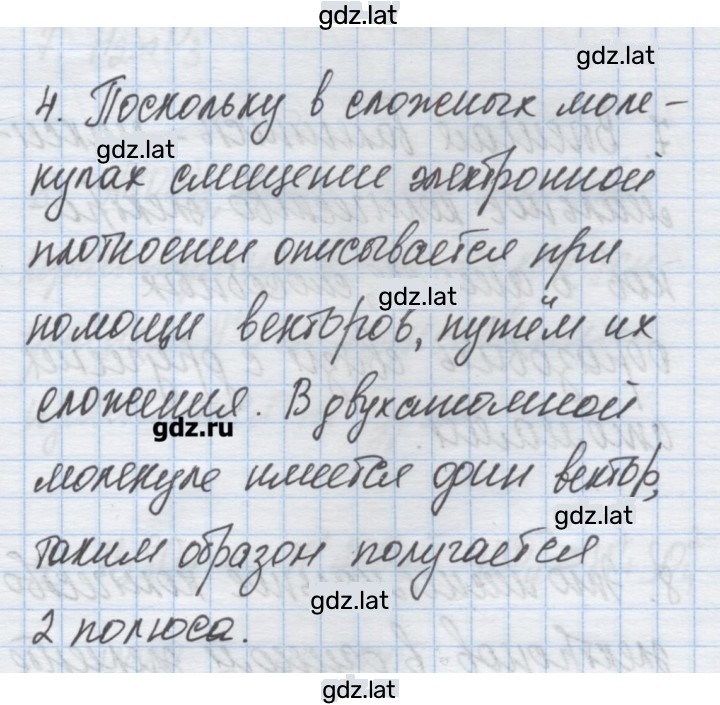 gdz.lat
gdz.lat
4. Поскольку в сложных моле-
gdz.lat
кулах смещение электронной
плотности описывается при
gdz.lat
помощи векторов, путём их
сложения. В двухатомной
gdz.ru
молекуле имеется один вектор,
gdz.lat
таким образом получается
gdz.lat
2 полюса.
gdz.lat